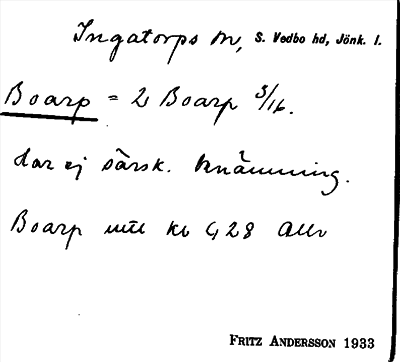 Ingatorps sn, S. Vedbo hd, Jönk. l.
Boarp = 2 Boarp 3/16.
har ej särsk. benämning.
Boarp
FRITZ ANDERSSON 1933